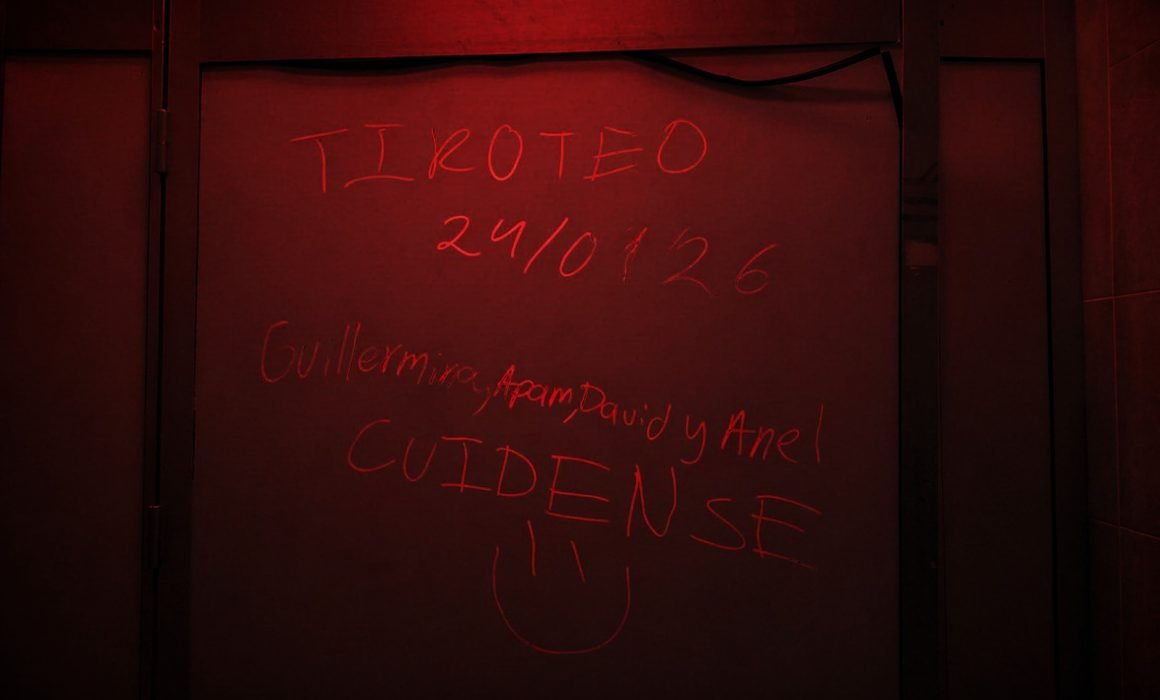 TIROTEO
24/01/26
Guillermina, Apam, David y Anel
CUIDENSE